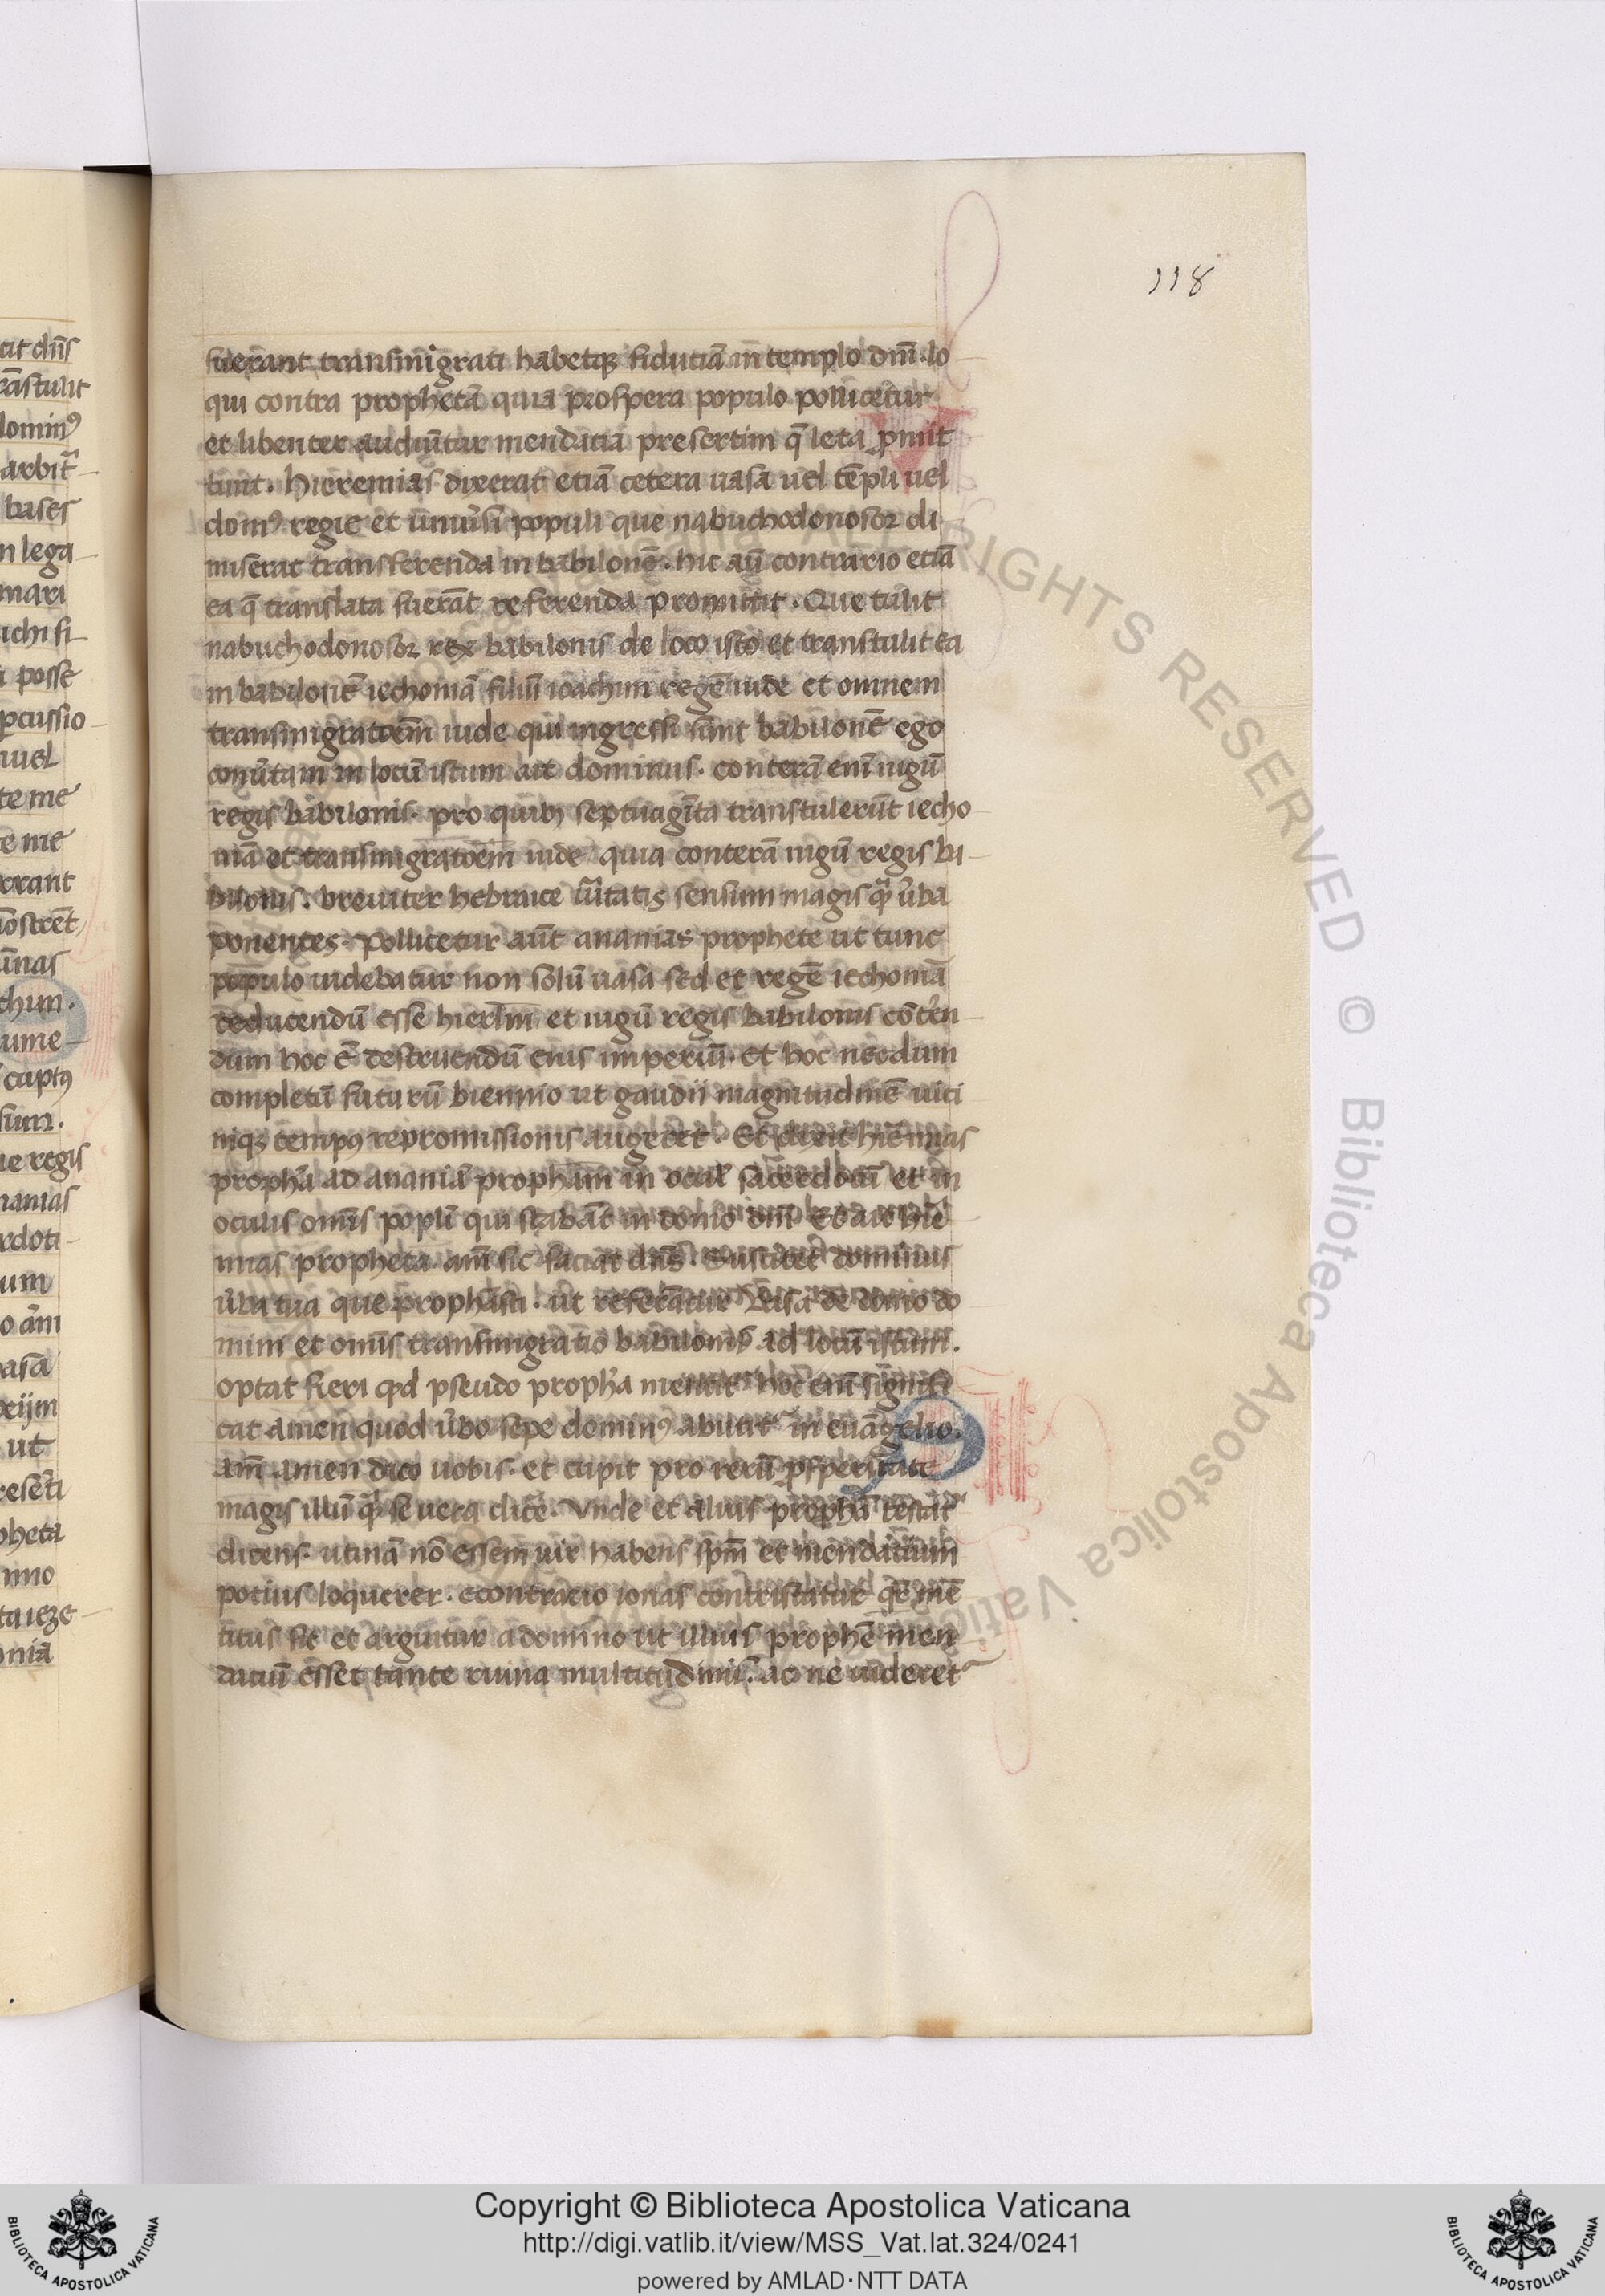 118
fuerant transmigrati habetqȝ fiduciā in templo dm̄. lo
qui contra prophetā quia prospera populo pollicetur
et libenter audiūtur mendatia presertim q̄ leta ꝓmit
tunt. hieremias dixerat etiā cetera uasa uel tēpli uel
domꝰ regie et uniuˀsi populi que nabuchodonosor di
miserat transferenda in babilonē. hic aū contrario etiā
ea q̄ translata fuerāt referenda promittit. Que tulit
nabuchodonosor rex babilonis de loco isto et transtulit ea
in babilonē iechoniā filiū ioachim regē iude et omnem
transmigratoēm iude qui ingressi sunt babilonē ego
conuˀtam in locū istum ait dominus. conterā enī iugū
regis babilonis. pro quibȝ septuagīta transtulerūt iecho
niā et transmigratoēm iude quia conterā iugū regis ba
bilonis. breuiter hebraice uˀitatis sensum magis qᷓ uˀba
ponentes. Pollicetur aūt ananias prophete ut tunc
populo uidebatur non solū uasa sed et regē iechoniā
reducendū esse hierlm̄ et iugū regis babilonis cōterˀen
dum hoc ē destruendū eius imperiū. et hoc necdum
completū futurū biennio ut gaudii magnitudinē uici
niqȝ tempꝰ repromissionis augeret. Et dixit hiēmias
prophā ad ananiā prophām in ocul̄ sacerdotū et in
oculis om̄is popl̄i qui stabāt in domo dm̄. Et ait hie
mias propheta. am̄ sic faciat dn̄s. Suscitet dominus
uˀba tua que prophāsti. ut referātur uasa de domo do
mini et om̄is transmigratio babilonis ad locū istum.
optat fieri qd pseudo propħa mentitˀ hoc enī signifi
cat amen quod uˀbo sepe dominꝰ abutitˀ in euāgelio.
am̄ amen dico uobis. et cupit pro rerū ꝓsperitate
magis illū qᷓ se uera dicē. Vnde et alius prophā testatˀ
dicens. utinā nō essem uir habens spm̄ et mendatium
potius loquerer. econtrario ionas contristatur qr̄ mē
titus sit et arguitur a domino ut illius prophē men
datiū esset tante ruina multitudinis. ac ne uideretˀ
tit dn̄s
rāstulit
dominꝰ
arbitˀ
bases
n lega
mari
posse
ꝑcussio
uuel
te me
e me
rant
chim.
ume
captꝰ
sum.
ue regis
nanias
rdoti
um
asa
ut
pheta
nno
ta ieze
niā
ALL RIGHTS RESERVED © Biblioteca Apostolica Vaticana
BIBLIOTECA APOSTOLICA VATICANA
Copyright © Biblioteca Apostolica Vaticana
http://digi.vatlib.it/view/MSS_Vat.lat.324/0241
powered by AMLAD·NTT DATA
BIBLIOTECA APOSTOLICA VATICANA